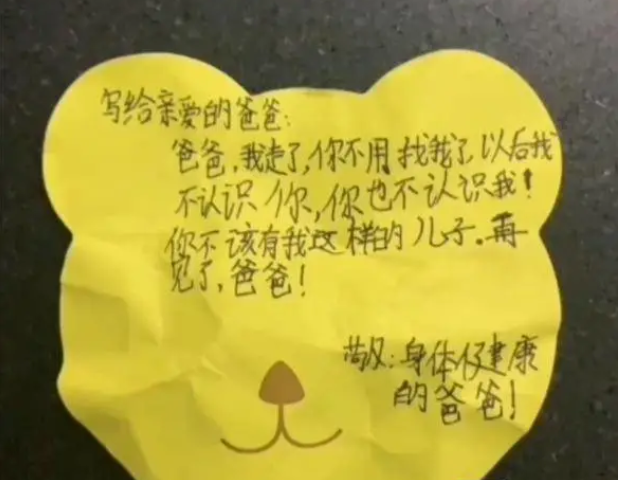 写给亲爱的爸爸:
爸爸,我走了,你不用找我了,以后我
不认识你,你也不认识我!
你不该有我这样的儿子.再
见了,爸爸!
身体健康
的爸爸!